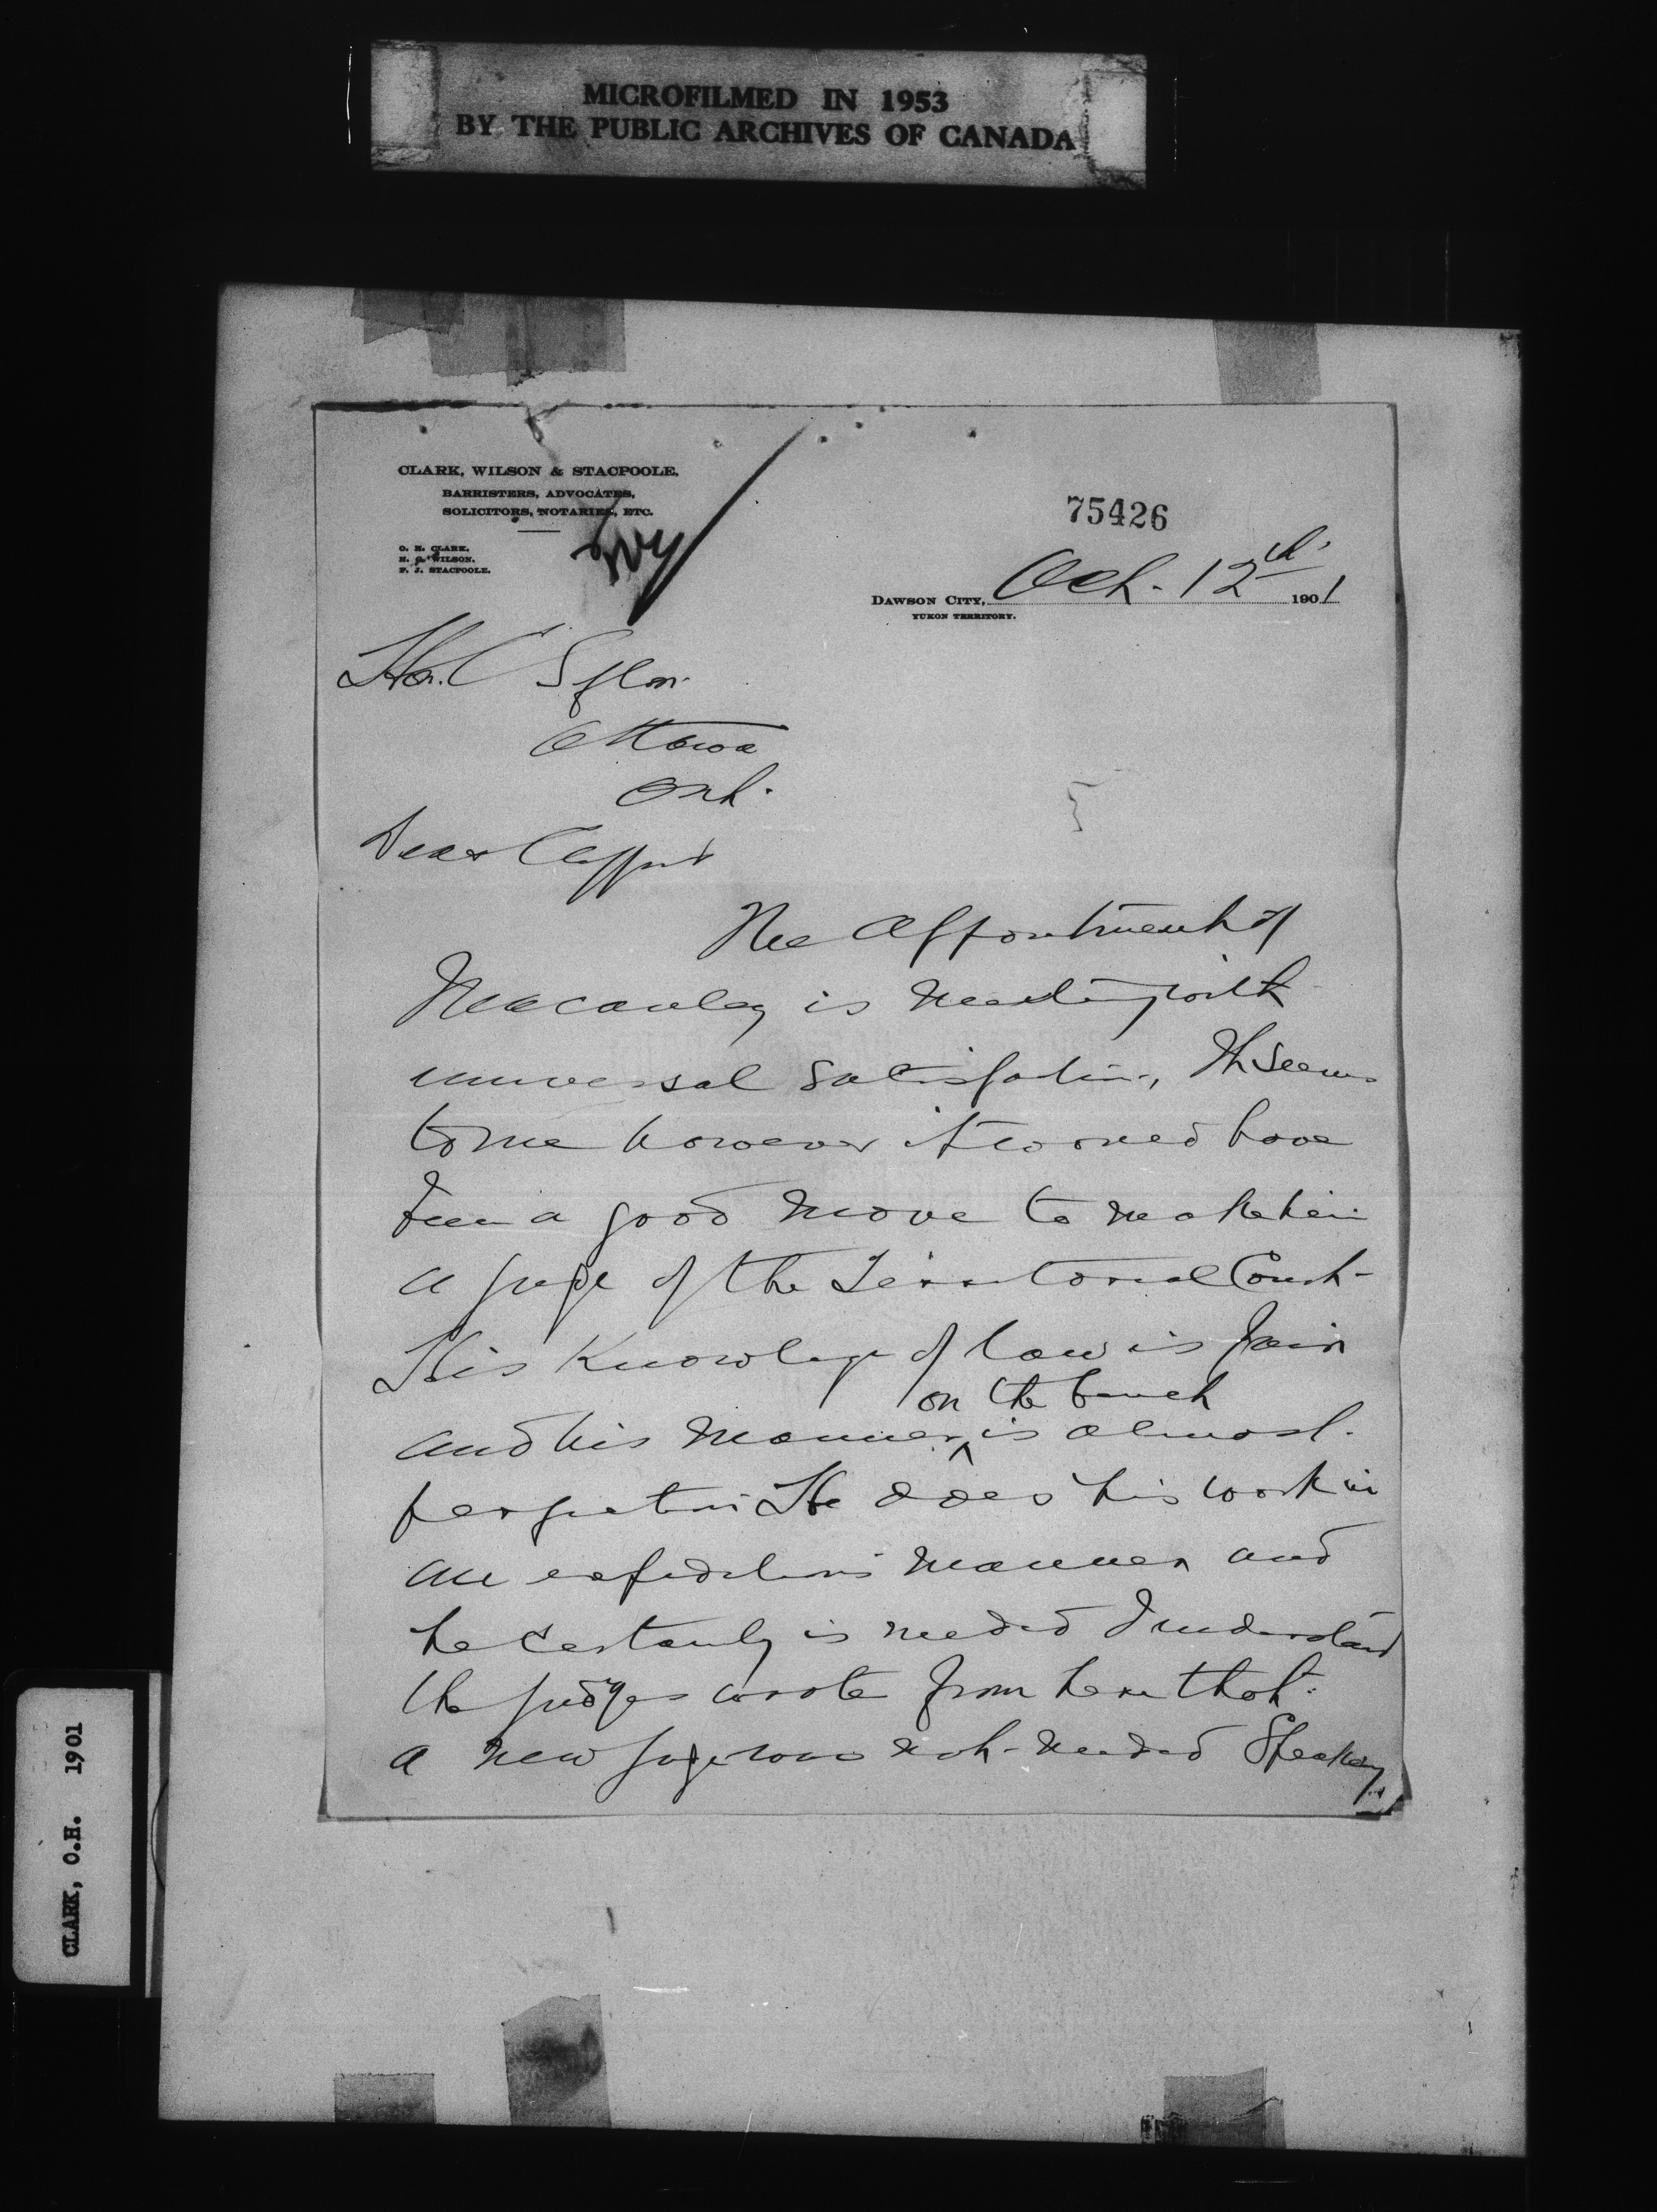 MICROFILMED IN 1953
BY THE PUBLIC ARCHIVES OF CANADA
CLARK, WILSON & STACPOOLE,
BARRISTERS, ADVOCATES,
SOLICITORS, NOTARIES, ETC.
O. H. CLARK.
H. G. WILSON.
F. J. STACPOOLE.
75426
DAWSON CITY, Oct. 12th. 1901
YUKON TERRITORY.
Hon. C Sifton
Ottawa
Ont.
Dear Clifford
The appointment of
Macaulay is meeting with
universal satisfaction, It seems
to me however it would have
been a good move to make him
a judge of the Territorial Court-
His knowledge of law is fair
on the bench
and his manner ^ is almost
perfection He does his work in
an expeditious manner and
he certainly is needed I understand
the judges wrote from here that
a new judge was not needed Speaking
CLARK, O.H. 1901